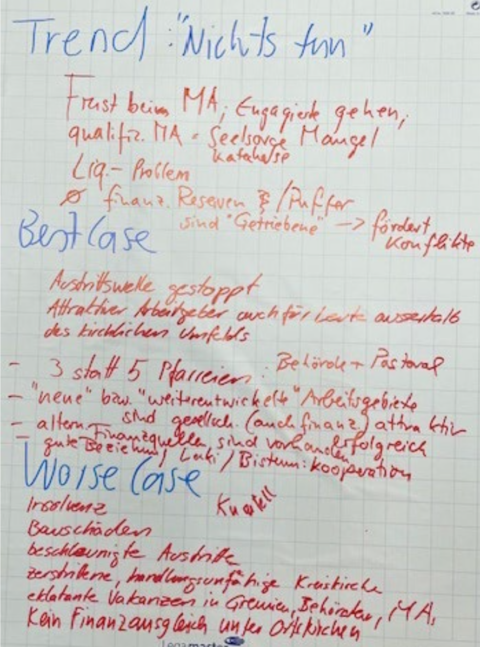 Trend: "Nichts tun"
Frust beim MA; Engagierte gehen;
qualifiz. MA - Seelsorge Mangel
Katechese
Liq.- Problem
Ø finanz. Reserven /Puffer
sind "Getriebene" → fördert
Konflikte
Best Case
Austrittswelle gestoppt
Attraktiver Arbeitgeber auch für Leute ausserhalb
des kirchlichen Umfelds
- 3 statt 5 Pfarreien: Behörde + Pastoral
- "neue" bzw. "weiterentwickelte" Arbeitsgebiete
sind gesellsch. (auch finanz.) attraktiv
- altern. Finanzquellen sind vorhanden
erfolgreich
- gute Beziehung / Bistum: Kooperation
Worse Case
Insolvenz
Bauschäden
beschleunigte Austritte
zerstrittene, handlungsunfähige Kreiskirche
eklatante Vakanzen in Gremien, Behörden, MA,
Kein Finanzausgleich unter Ortskirchen
Legamaster